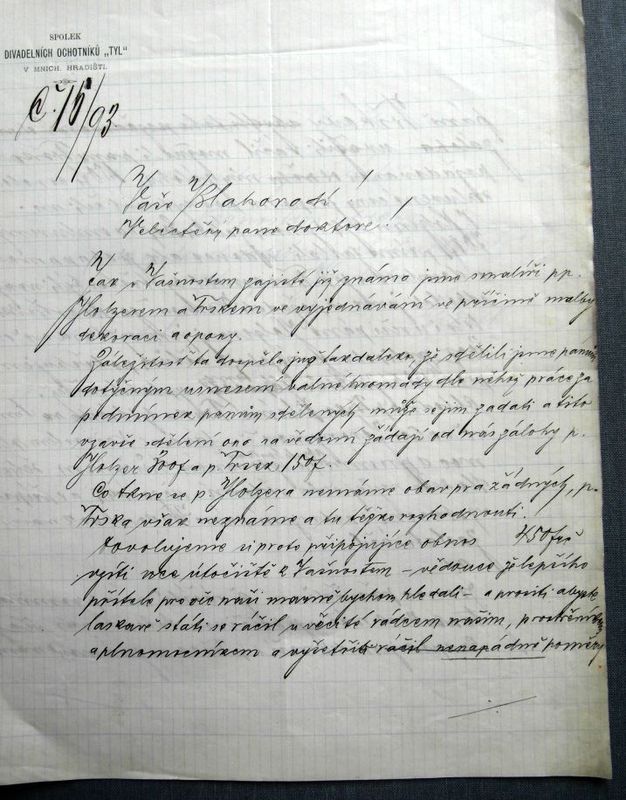 SPOLEK
DIVADELNÍCH OCHOTNÍKŮ „TYL“
V MNICH. HRADIŠTI.
Č. 16/93
Vaše Blahorodí!
Velectěný pane doktore!
Jak u Vašnostem zajisté již známo jsme s malíři pp.
Holzerem a Trskem ve vyjednávání ve příčině malby
dekorací a opony.
Záležitosť ta dospěla již tak daleko, že sdělili jsme pánům
dotyčným usnesení valné hromady dle něhož práce za
podmínek pánům sdělených může se jim zadati a tito
vzavše sdělení ono na vědomí žádají od nás zálohy p.
Holzer 300f a p. Trsek 150f.
Co tkne se p. Holzera nemáme obav pra žádných, p.
Trska však neznáme a tu těžko rozhodnouti.
Dovolujeme si proto připojujíce obnos 450f
vzíti své útočiště k Vašnostem – vědouce že lepšího
přítele pro věc naši marně bychom hledali – a prositi abyste
laskavě státi se ráčil u věci té rádcem naším, prostředníkem
a plnomocníkem a vyšetřiti ráčil nenápadně poměry